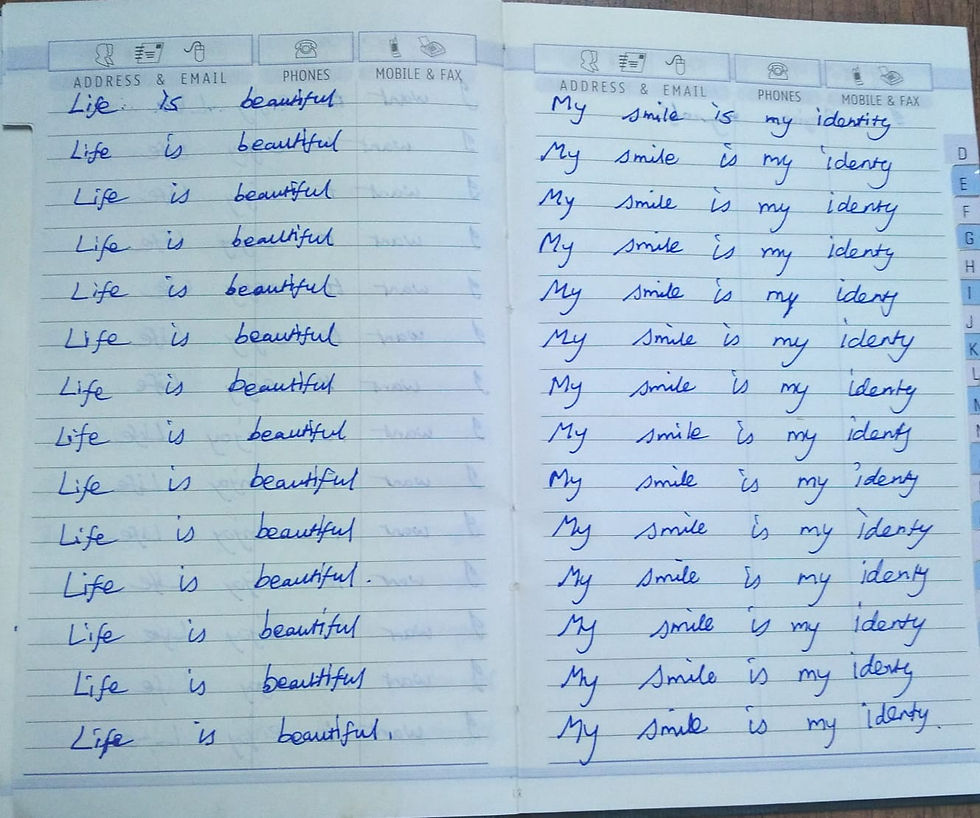 ADDRESS & EMAIL PHONES MOBILE & FAX
Life is beautiful
Life is beautiful
Life is beautiful
Life is beautiful
Life is beautiful
Life is beautiful
Life is beautiful
Life is beautiful
Life is beautiful
Life is beautiful
Life is beautiful.
Life is beautiful
Life is beautiful
Life is beautiful.
ADDRESS & EMAIL PHONES MOBILE & FAX
My smile is my identity
My smile is my identy
My smile is my identy
My smile is my identy
My smile is my identy
My smile is my identy
My smile is my identy
My smile is my identy
My smile is my identy
My smile is my identy
My smile is my identy
My smile is my identy
My smile is my identy
My smile is my identy.
D
E
F
G
H
I
J
K
L